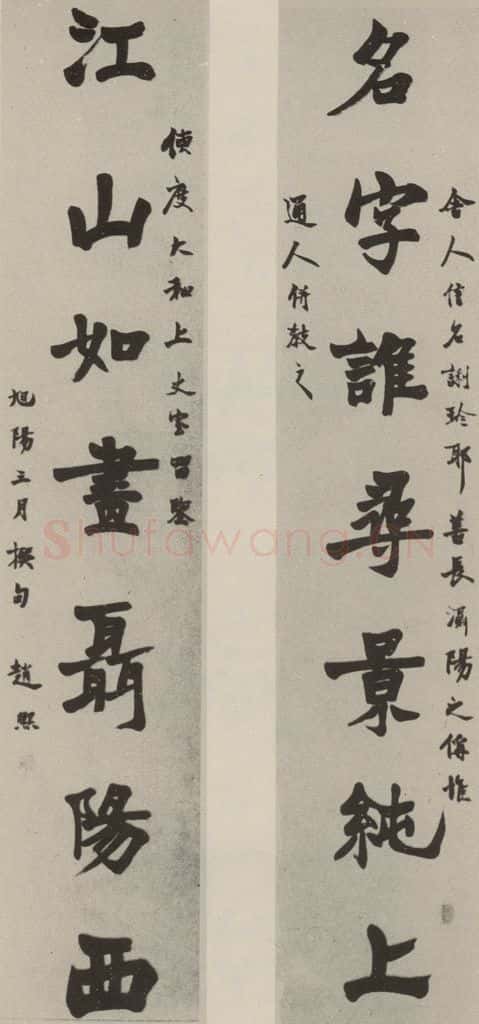 舍人信名謝玲耶善長灄陽之偁惟
名字誰尋景純上
通人併教之
度大和上丈室畱鑒
江山如畫聶陽西
旭陽三月撰句 趙熙
Shufawang.CN